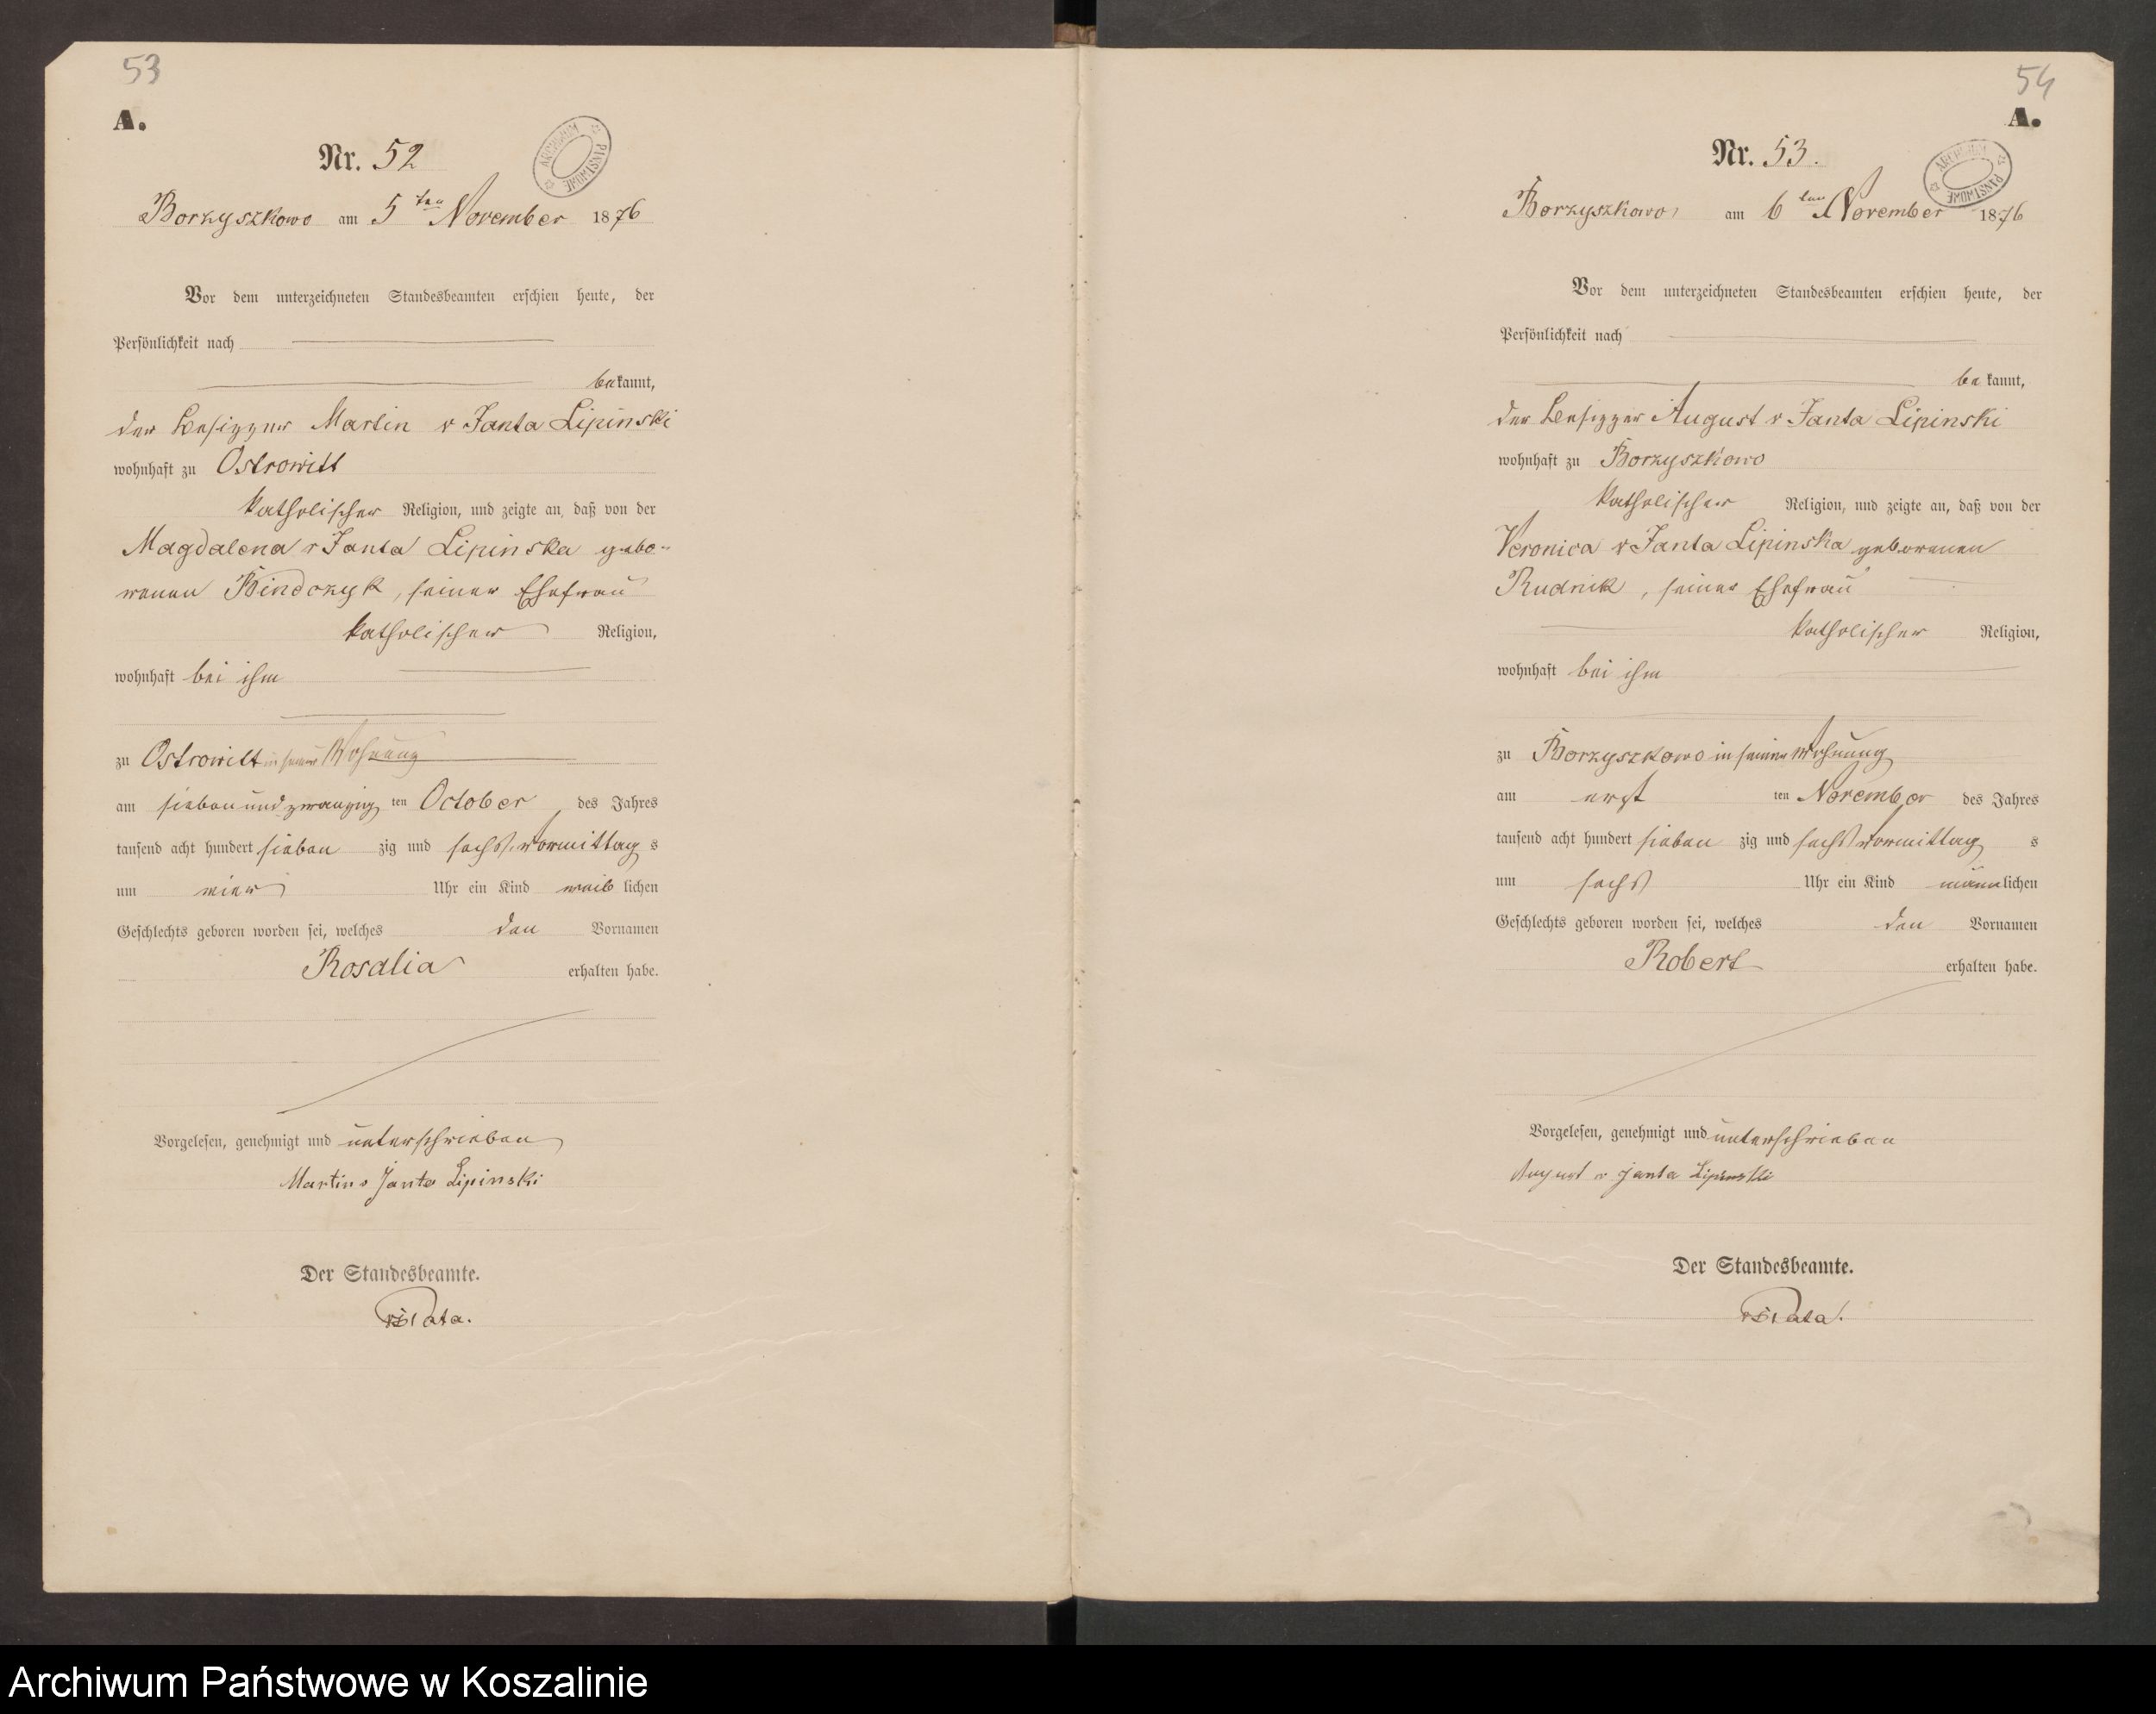 53
A.
Nr. 52
ARCHIWUM PAŃSTWOWE
Borzyszkowo am 5ten November 1876
Vor dem unterzeichneten Standesbeamten erschien heute, der
Persönlichkeit nach
bekannt,
der Besizzer Martin v Janta Lipinski
wohnhaft zu Ostrowitt
katholischer Religion, und zeigte an, daß von der
Magdalena v Janta Lipinska gebo-
renen Bindczyk, seiner Ehefrau
katholischer Religion,
wohnhaft bei ihm
zu Ostrowitt in seiner Wohnung
am siebenundzwanzigten October des Jahres
tausend acht hundert siebenzig und sechs, Vormittags
um vier Uhr ein Kind weiblichen
Geschlechts geboren worden sei, welches den Vornamen
Rosalia erhalten habe.
Vorgelesen, genehmigt und unterschrieben
Martin v Janta Lipinski
Der Standesbeamte.
54
A.
Nr. 53.
ARCHIWUM PAŃSTWOWE
Borzyszkowo am 6ten November 1876
Vor dem unterzeichneten Standesbeamten erschien heute, der
Persönlichkeit nach
bekannt,
der Besizzer August v Janta Lipinski
wohnhaft zu Borzyszkowo
katholischer Religion, und zeigte an, daß von der
Veronica v Janta Lipinska geborenen
Rudnik, seiner Ehefrau
katholischer Religion,
wohnhaft bei ihm
zu Borzyszkowo in seiner Wohnung
am erst ten November des Jahres
tausend acht hundert siebenzig und sechs Vormittags
um sechs Uhr ein Kind männlichen
Geschlechts geboren worden sei, welches den Vornamen
Robert erhalten habe.
Vorgelesen, genehmigt und unterschrieben
August v Janta Lipinski
Der Standesbeamte.
Archiwum Państwowe w Koszalinie